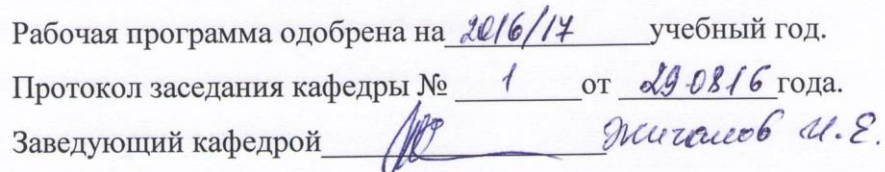 Рабочая программа одобрена на 2016/17 учебный год.
Протокол заседания кафедры № 1 от 29.08.16 года.
Заведующий кафедрой Жигалов И.Е.